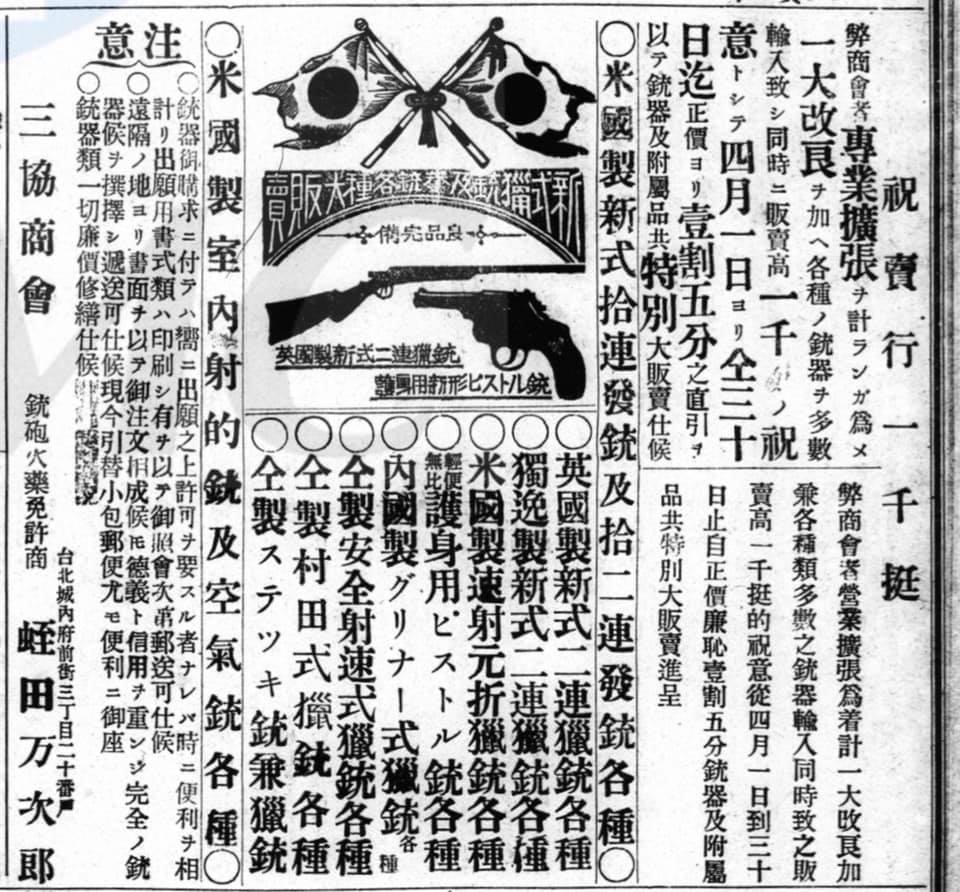 祝賣行一千挺
弊商會者專業擴張ヲ計ランガ爲メ
一大改良ヲ加ヘ各種ノ銃器ヲ多數
輸入致シ同時ニ販賣高一千挺ノ祝
意トシテ四月一日ヨリ仝三十
日迄正價ヨリ壹割五分之直引ヲ
以テ銃器及附屬品共特別大販賣仕候
弊商會者營業擴張爲着計一大改良加
兼各種類多數之銃器輸入同時致之販
賣高一千挺的祝意從四月一日到三十
日止自正價廉恥壹割五分銃器及附屬
品共特別大販賣進呈
○米國製新式拾連發銃及拾二連發銃各種○
新式獵銃及拳銃各種大販賣
良品完備
英國製新式二連獵銃
護身用新形ピストル銃
○英國製新式二連獵銃各種
○獨逸製新式二連獵銃各種
○米國製速射元折獵銃各種
○輕便無比護身用ピストル銃各種
○內國製グリナー式獵銃各種
○仝製安全射速式獵銃各種
○仝製村田式獵銃各種
○仝製ステツキ銃兼獵銃
○米國製室內射的銃及空氣銃各種○
注意
○銃器御購求ニ付テハ嚮ニ出願之上許可ヲ要スル者ナレバ時ニ便利ヲ相
計リ出願用書式類ハ印刷シ有ヲ以テ御照會次第郵送可仕候
○遠隔ノ地ヨリ書面ヲ以テ御注文相成候モ德義ト信用ヲ重ンジ完全ノ銃
器候ヲ撰擇シ遞送可仕候現今引替小包郵便尤モ便利ニ御座
○銃器類一切廉價修繕仕候
台北城內府前街三丁目二十番戶
三協商會 銃砲火藥免許商 蛭田万次郎